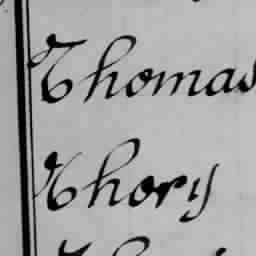 Thomas
Thory